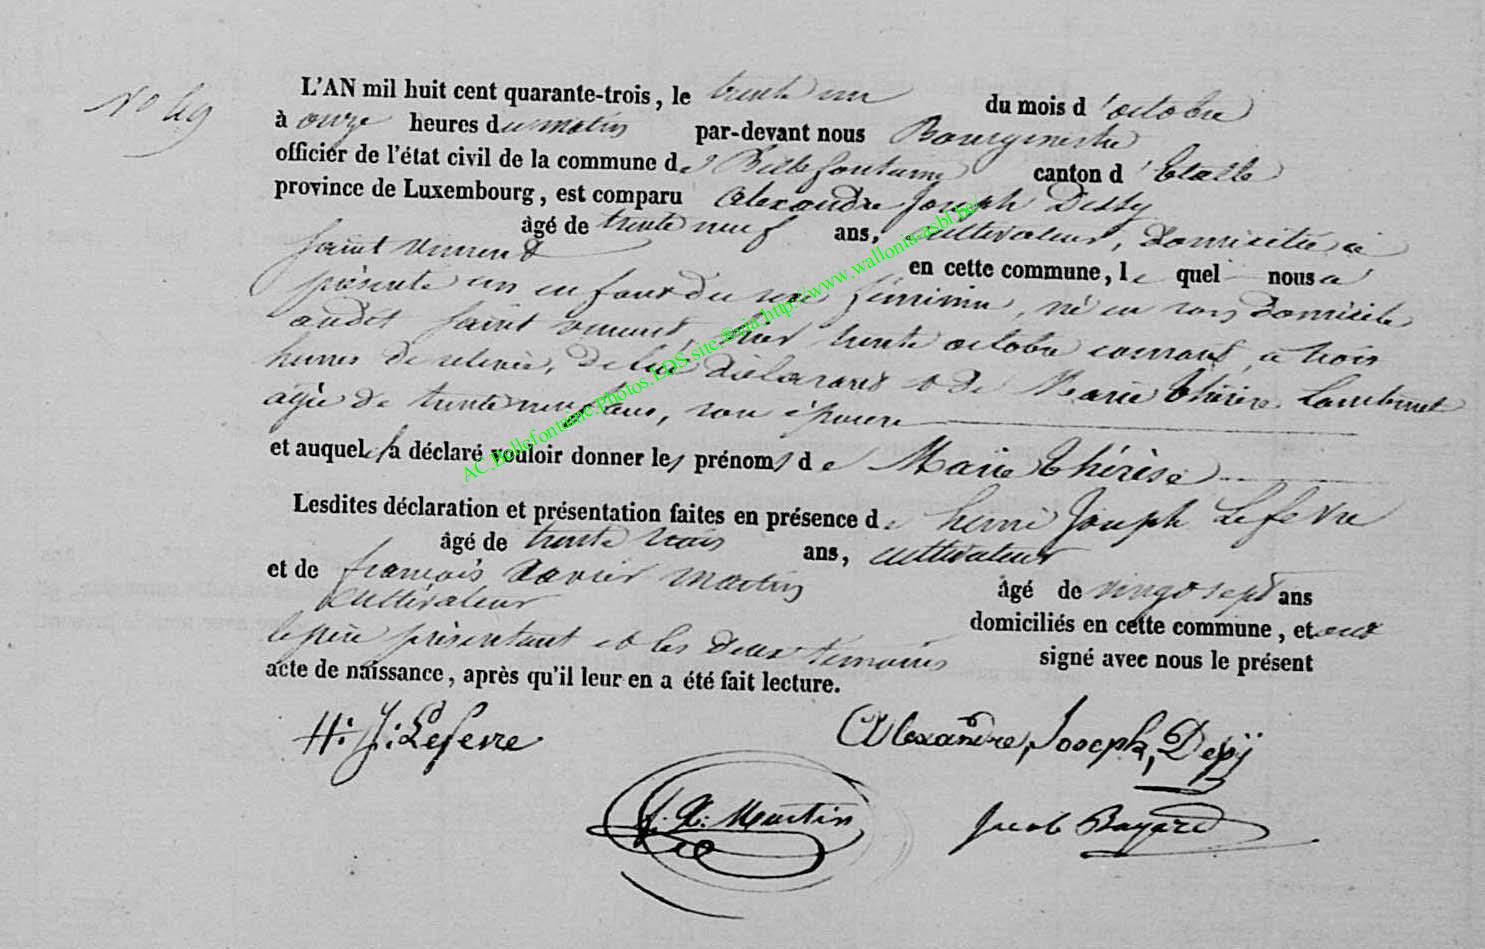 No 49
L'AN mil huit cent quarante-trois, le trente un du mois d'octobre
à onze heures du matin par-devant nous Bourgmestre
officier de l'état civil de la commune de Bellefontaine canton d'Etalle
province de Luxembourg, est comparu Alexandre Joseph Dessy
âgé de trente neuf ans, cultivateur, domicilié à
saint vincent en cette commune, lequel nous a
présenté un enfant du sexe féminin, né en son domicile
audit saint vincent, hier trente octobre courant, à trois
heures de relevée, de lui déclarant & de Marie thérèse Lambinet
agée de trente neuf ans, son épouse
et auquel il a déclaré vouloir donner les prénoms de Marie thérèse
Lesdites déclaration et présentation faites en présence de henri Joseph Lefevre
âgé de trente trois ans, cultivateur
et de françois Xavier Martin âgé de vingt sept ans
cultivateur domiciliés en cette commune, et ont
le père présentant et les deux témoins signé avec nous le présent
acte de naissance, après qu'il leur en a été fait lecture.
H. J. Lefevre
Alexandre, Joseph, Deßÿ
f. X. Martin
Jacob Bayard
AC.Bellefontaine.Photos.EDS.site.@via.http://www.wallonia-asbl.be/